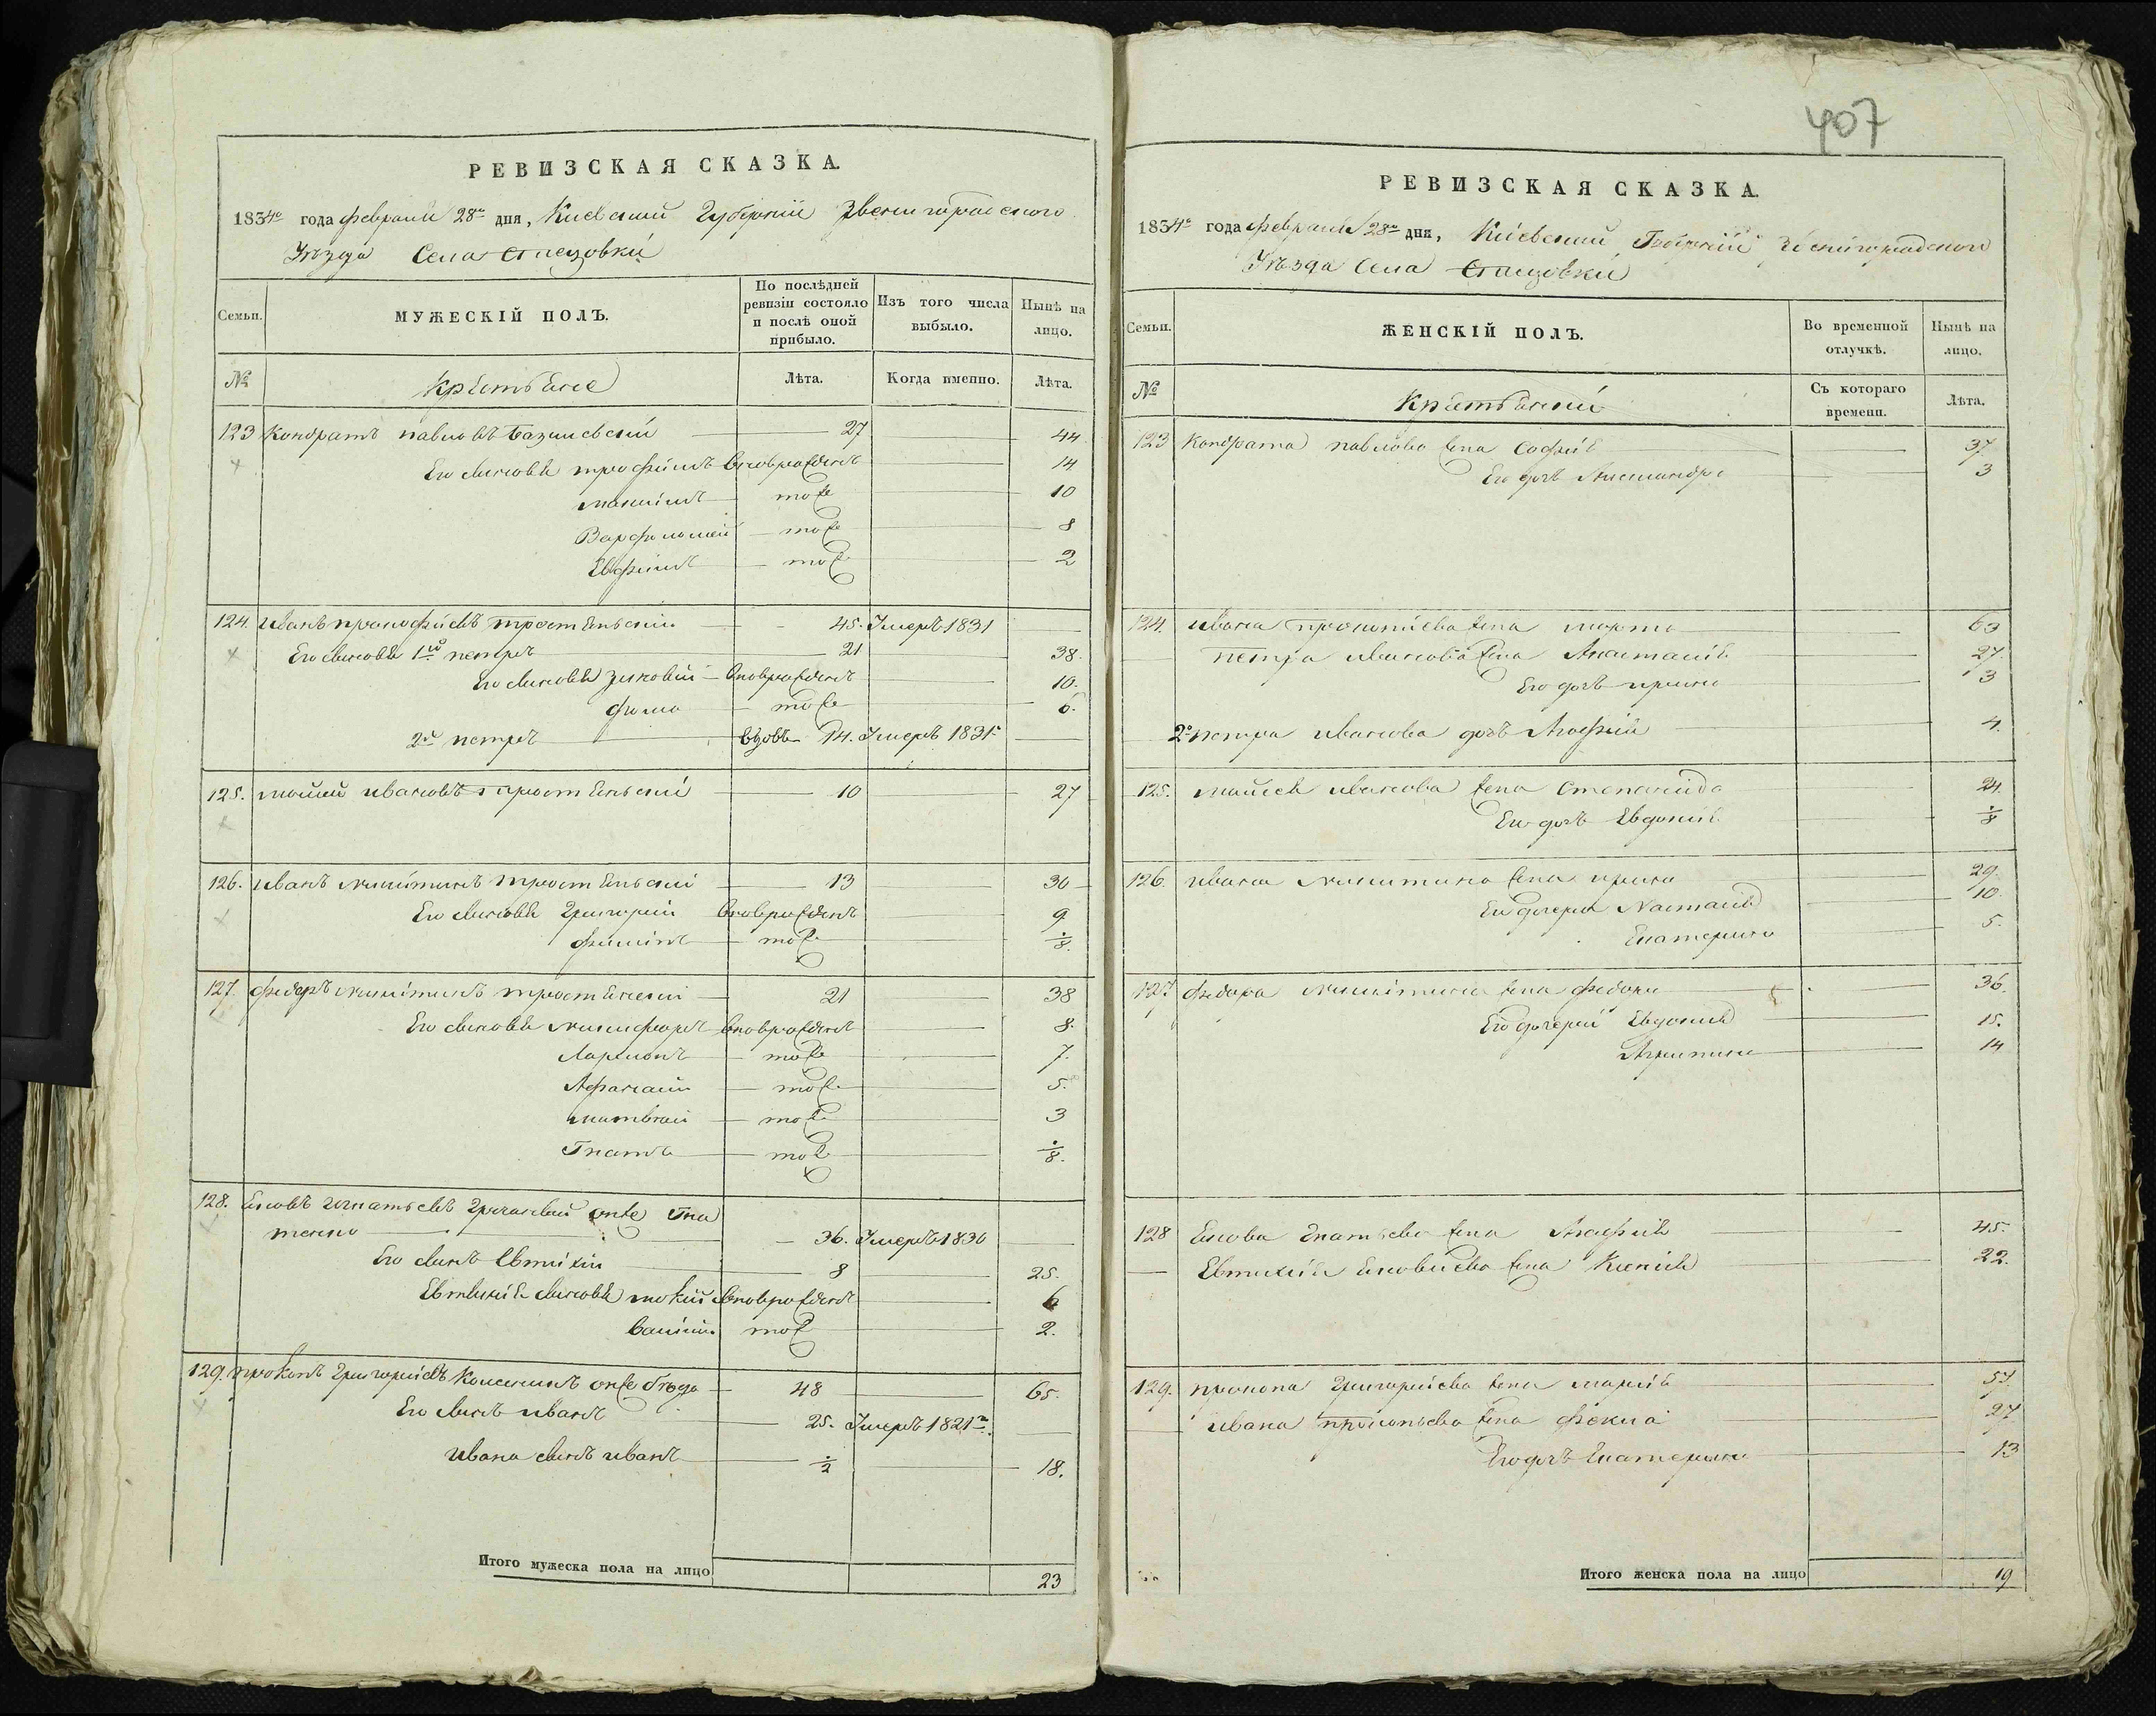 407
РЕВИЗСКАЯ СКАЗКА.
1834го года февраля 28го дня, Киевской Губернии Звенигородского
Уезда Села Стецовки
Семьи. МУЖЕСКІЙ ПОЛЪ. По послѣдней ревизіи состояло и послѣ оной прибыло. Изъ того числа выбыло. Нынѣ на лицо.
№ Крестьяне Лѣта. Когда именно. Лѣта.
123 Кондратъ павловъ 27 44
Его сыновья трофимъ вновьрожденъ 14
максимъ тоже 10
Варфоломей тоже 8
Евфимъ тоже 2
124. иванъ прокофиевъ 45. Умеръ 1831
Его сыновья 1й петръ 21 38.
Его сыновья зиновий вновьрожденъ 10.
фома тоже 6.
2й петръ 14. Умеръ 1831
125. мойсей ивановъ 10 27
126. иванъ никитинъ 13 30
Его сыновья Григорий вновьрожденъ 9
филипъ тоже ⸱/8.
127. федоръ никитинъ 21 38
Его сыновья никифоръ вновьрожденъ 8.
Ларионъ тоже 7.
Афанасий тоже 5.
матвей тоже 3
Гнатъ тоже ⸱/8.
128. игнатьевъ онже Гна
тенко 36. Умеръ 1830
Его сынъ Евтихий 8 25.
Евтихия сыновья мокий вновьрожденъ 6
Василий тоже 2.
129. прокопъ григориевъ онже 48 65.
Его сынъ иванъ 25. Умеръ 1821го
ивана сынъ иванъ ⸱/2 18.
Итого мужеска пола на лицо 23
РЕВИЗСКАЯ СКАЗКА.
1834го года февраля 28го дня, Киевской Губернии Звенигородского
Уезда Села Стецовки
Семьи. ЖЕНСКІЙ ПОЛЪ. Во временной отлучкѣ. Нынѣ на лицо.
№ Съ котораго времени. Лѣта.
123 Кондрата павлова жена София 37.
Его дочь Александра 3
124. ивана прокопиева жена марта 63
петра иванова жена Анастасия 27.
Его дочь ирина 3
2го петра иванова дочь Агафия 4.
125. мойсея иванова жена Степанида 24.
Его дочь Евдокия ⸱/8
126. ивана никитина жена ирина 29.
Его дочери Настасия 10.
Екатерина 5.
127 федора никитина жена федора 36.
Его дочери Евдокия 15.
Агрипина 14
128 Гнатьева жена Агафия 45.
Евтихия жена Ксения 22.
129. прокопа григориева жена мария 57.
ивана прокопьева жена фекла 27
Его дочь Екатерина 13
Итого женска пола на лицо 19